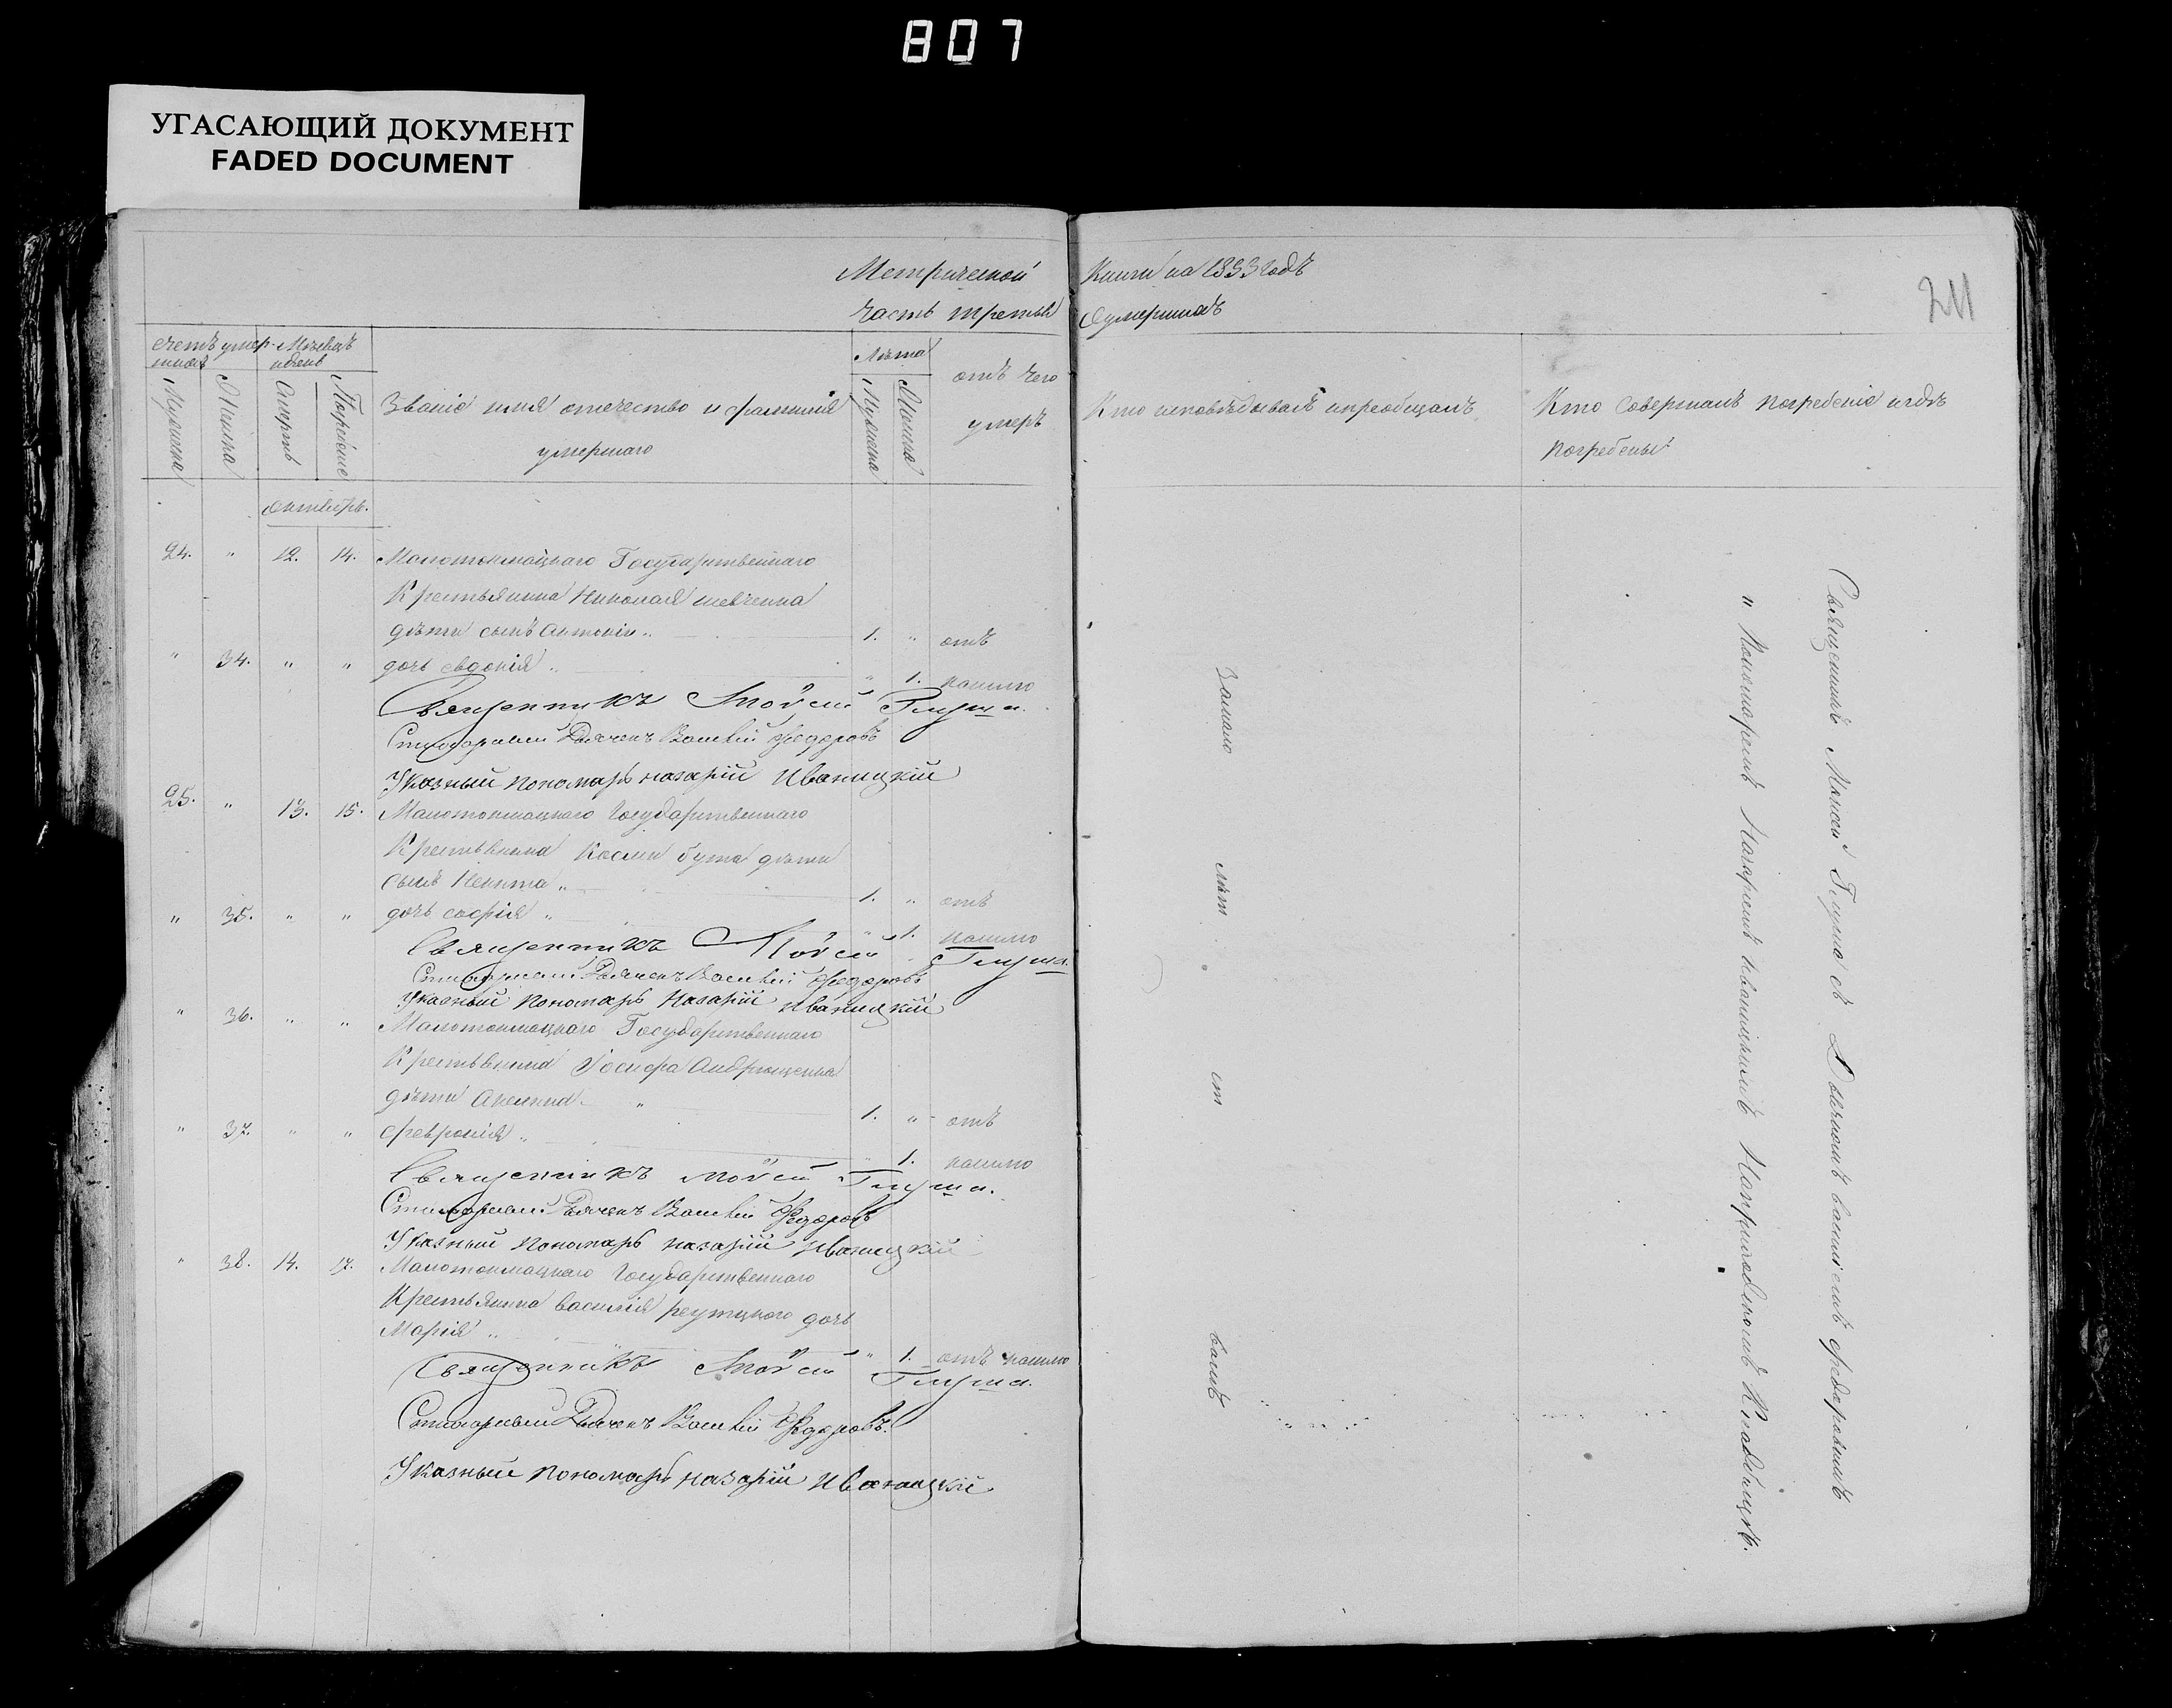 807
УГАСАЮЩИЙ ДОКУМЕНТ
FADED DOCUMENT
Метрической Книги на 1853 годъ
часть третья О умершихъ
211
Счетъ умершихъ
Мѣсяцъ и день
Лѣта
отъ чего умеръ
Мужеска
Женска
Смерть
Погребеніе
Званіе имя отечество и фамилія умершаго
Мужеска
Женска
Кто исповѣдывалъ и пріобщалъ
Кто Совершалъ погребеніе и гдѣ погребены
Октябрь.
24. " 12. 14. Малотокмацкаго Государственнаго
Крестьянина Николая Шевченка
дѣти сынъ Антоній " 1. " отъ
" 34. " " дочь Евдокія " " 1. кашлю
Священникъ Моѵсей Глума.
Стихарный Дьячекъ Василій Федоровъ
Указный Пономарь Назарій Иваницкій
25. " 13. 15. Малотокмацкаго Государственнаго
Крестьянина Космы Бута дѣти
сынъ Никита " 1. " отъ
" 35. " " дочь Софія " " 1. кашлю
Священникъ Моѵсей Глума.
Стихарный Дьячекъ Василій Федоровъ
Указный Пономарь Назарій Иваницкій
" 36. " " Малотокмацкаго Государственнаго
Крестьянина Іосифа Андрющенка
дѣти Акелина " 1. " отъ
" 37. " " Февронія " " 1. кашлю
Священникъ Моѵсей Глума.
Стихарный Дьячекъ Василій Федоровъ
Указный Пономарь Назарій Иваницкій
" 38. 14. 17. Малотокмацкаго Государственнаго
Крестьянина Василія Реутцкого дочь
Марія " " 1. отъ кашлю
Священникъ Моѵсей Глума.
Стихарный Дьячекъ Василій Федоровъ.
Указный Пономарь Назарій Иваницкій
За мало лѣт ст вомъ
Священникъ Моисей Глума съ Дьячкомъ Василіемъ Федоровымъ
" Пономаремъ Назаріемъ Иваницкимъ На приходскомъ Кладбищѣ.